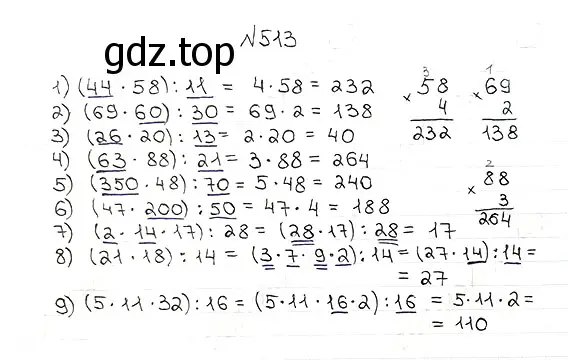 gdz.top
№513
1) (44 · 58) : 11 = 4 · 58 = 232
2) (69 · 60) : 30 = 69 · 2 = 138
3) (26 · 20) : 13 = 2 · 20 = 40
4) (63 · 88) : 21 = 3 · 88 = 264
5) (350 · 48) : 70 = 5 · 48 = 240
6) (47 · 200) : 50 = 47 · 4 = 188
7) (2 · 14 · 17) : 28 = (28 · 17) : 28 = 17
8) (21 · 18) : 14 = (3 · 7 · 9 · 2) : 14 = (27 · 14) : 14 =
= 27
9) (5 · 11 · 32) : 16 = (5 · 11 · 16 · 2) : 16 = 5 · 11 · 2 =
= 110
3
58
×
4
232
1
69
×
2
138
2
88
×
3
264